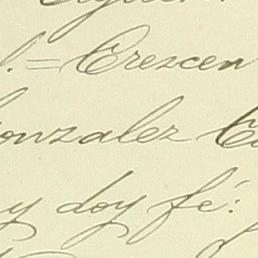 = Crescen
onzalez
y doy fé: